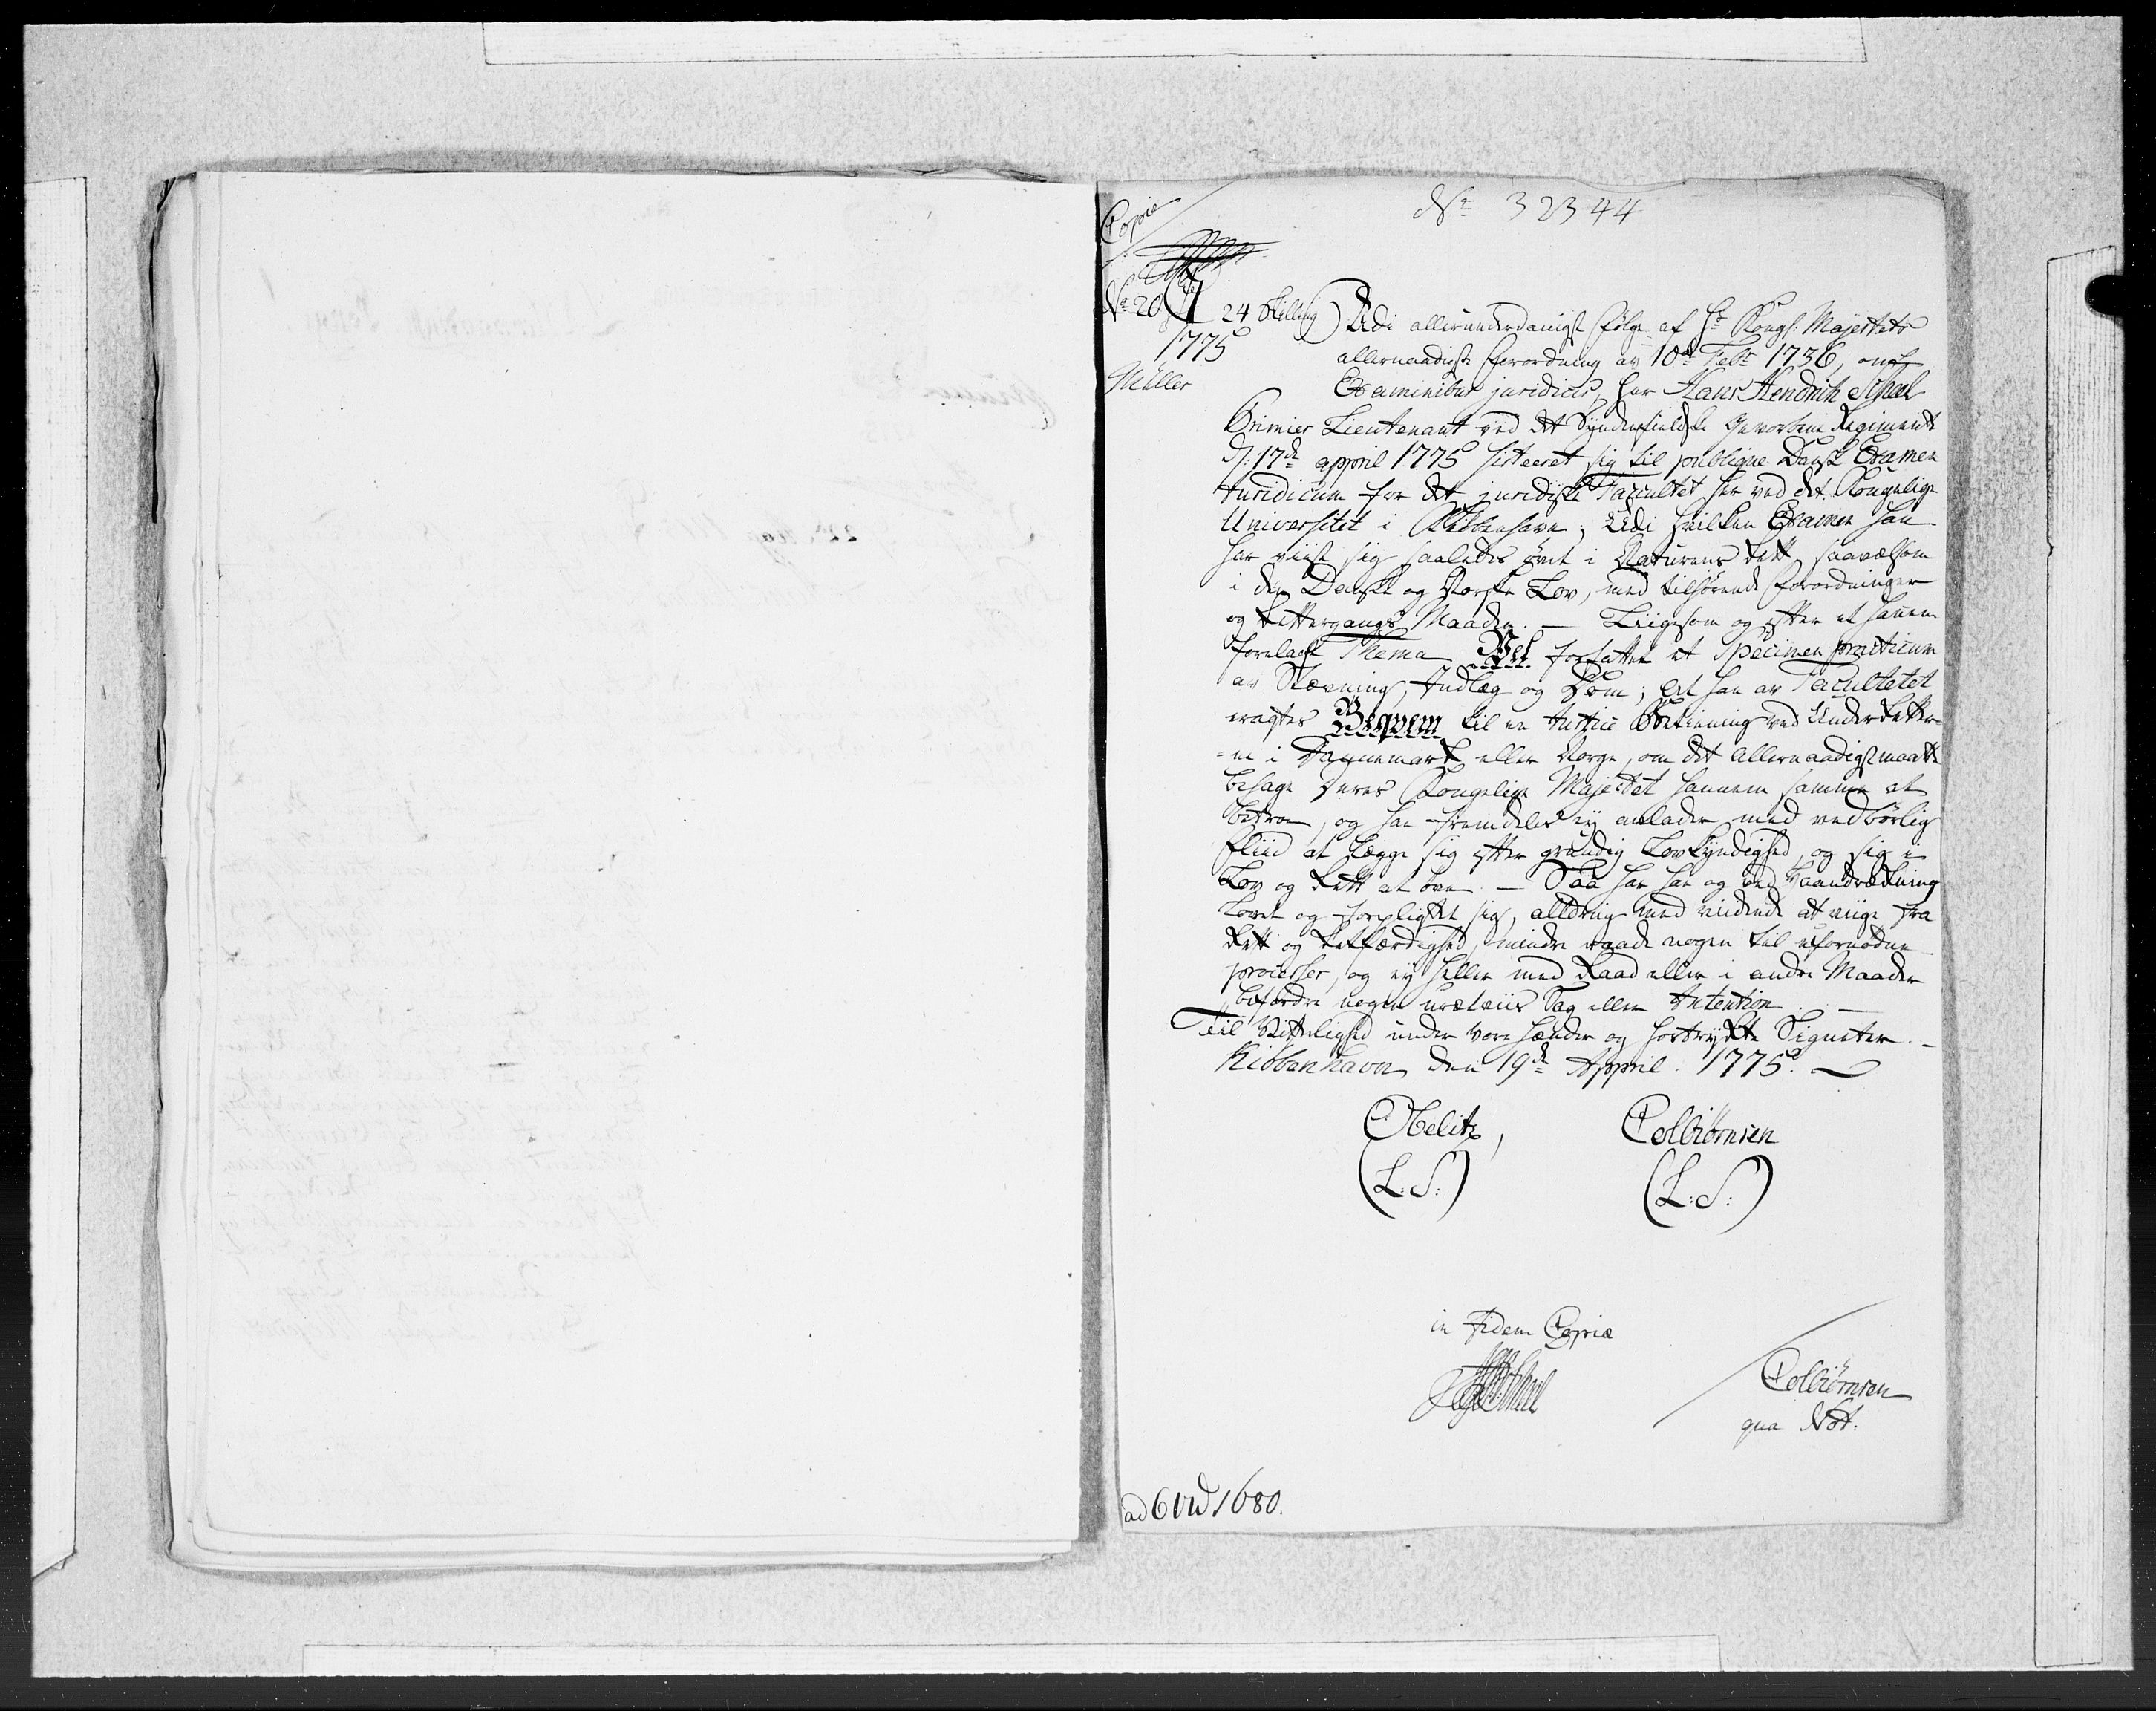 Copie
No 32344
No 20 24 Skilling
1775
Müller
Udi allerunderdanigst følge af Hs Kongl: Majestets
allernaadigste forordning av 10de Febr 1736, om
Examinibus juridicis, har Hans Hendrich Scheel
Primier Lieutenant ved det Syndenfieldske Gevorbene Regimendt
d: 17de appril 1775 sisteeret sig til publiqve Dansk Examen
Juridicum for det juridiske Facultet her ved det Kongelige
Universitet i Kiøbenhavn; Udi hvilken Examen han
har viist sig saaledes øvet i Naturens Rett, saavelsom
i den Danske og Norske Lov, med tilhørende forordninger
og Rettergangs Maader. — Liigesom og efter et hannem
forelagt Thema Vel forfattet et Specimen practicum
av Stævning, Indlæg og Dom; at han av Facultetet
eragtes Beqvem til en Justice Betiening ved Under Retter-
-ne i Dannemark eller Norge, om det allernaadigst maatte
behage Deres Kongelige Majestet hannem samme at
betroe, og han fremdeles ej anlader med vedbørlig
fliid at lægge sig efter grundig Lovkyndighed, og sig i
Lov og Rett at øve. — Saa har han og ved Haandrækning
Lovet og forpligtet sig, alldrig med vidende at viige fra
Rett og Retfærdighed, mindre raade nogen til ufornødne
processer, og ej heller med Raad eller i andre Maader
befordre nogen uretviis Sag eller Intention. —
Til Vitterlighed under vore Hænder og hostrykte Signeter. —
Kiöbenhavn den 19de Appril 1775. —
Obelitz,
Colbiörnsen
(L:S:)
(L:S:)
in Fidem Copiæ
Scheel
Colbiörnsen
qua Not:
ad 6 1680.